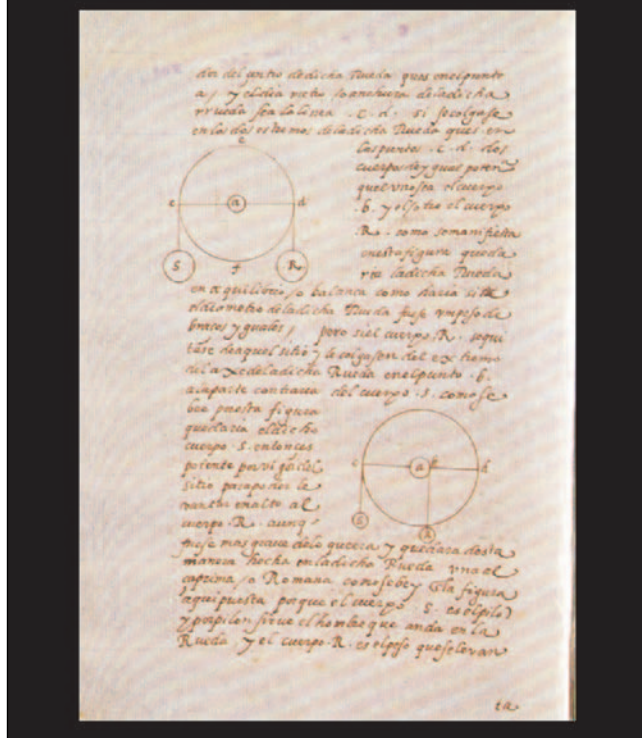 dor del çentro dedicha Rueda ques enelpunto
a/ y eldiametro /o anchura deladicha
rrueda sea la linea .c. d. si secolgase
en los dos estremos deladicha Rueda ques en
los puntos .c. d. dos
cuerpos de ygual
quel uno sea el cuerpo
.b. y el otro el cuerpo
.R. como semanifiesta
en esta figura queda
ladicha Rueda
en equilibrio /o balança como haria si el
eldiametro deladicha Rueda fuese un peso de
braços yguales / pero si el cuerpo .R. se qui
tase deaquel sitio y le colgasen del extremo
del axe deladicha Rueda enelpunto .b.
alaparte contraria del cuerpo .s. como se
bee figura
quedaria eldicho
cuerpo .S. entonces
del
sitio
en alto al
cuerpo .R. aunq
fuese mas grave delo que era y quedara desta
manera hecha enladicha Rueda una el
/o Romana como se bee la figura
aqui puesta porque el cuerpo S. es elpilon
y porpilon sirve elhombre que anda en la
Rueda y el cuerpo .R. es elpeso que selevan
ta
e
c a d
S f R
c a b d
S R